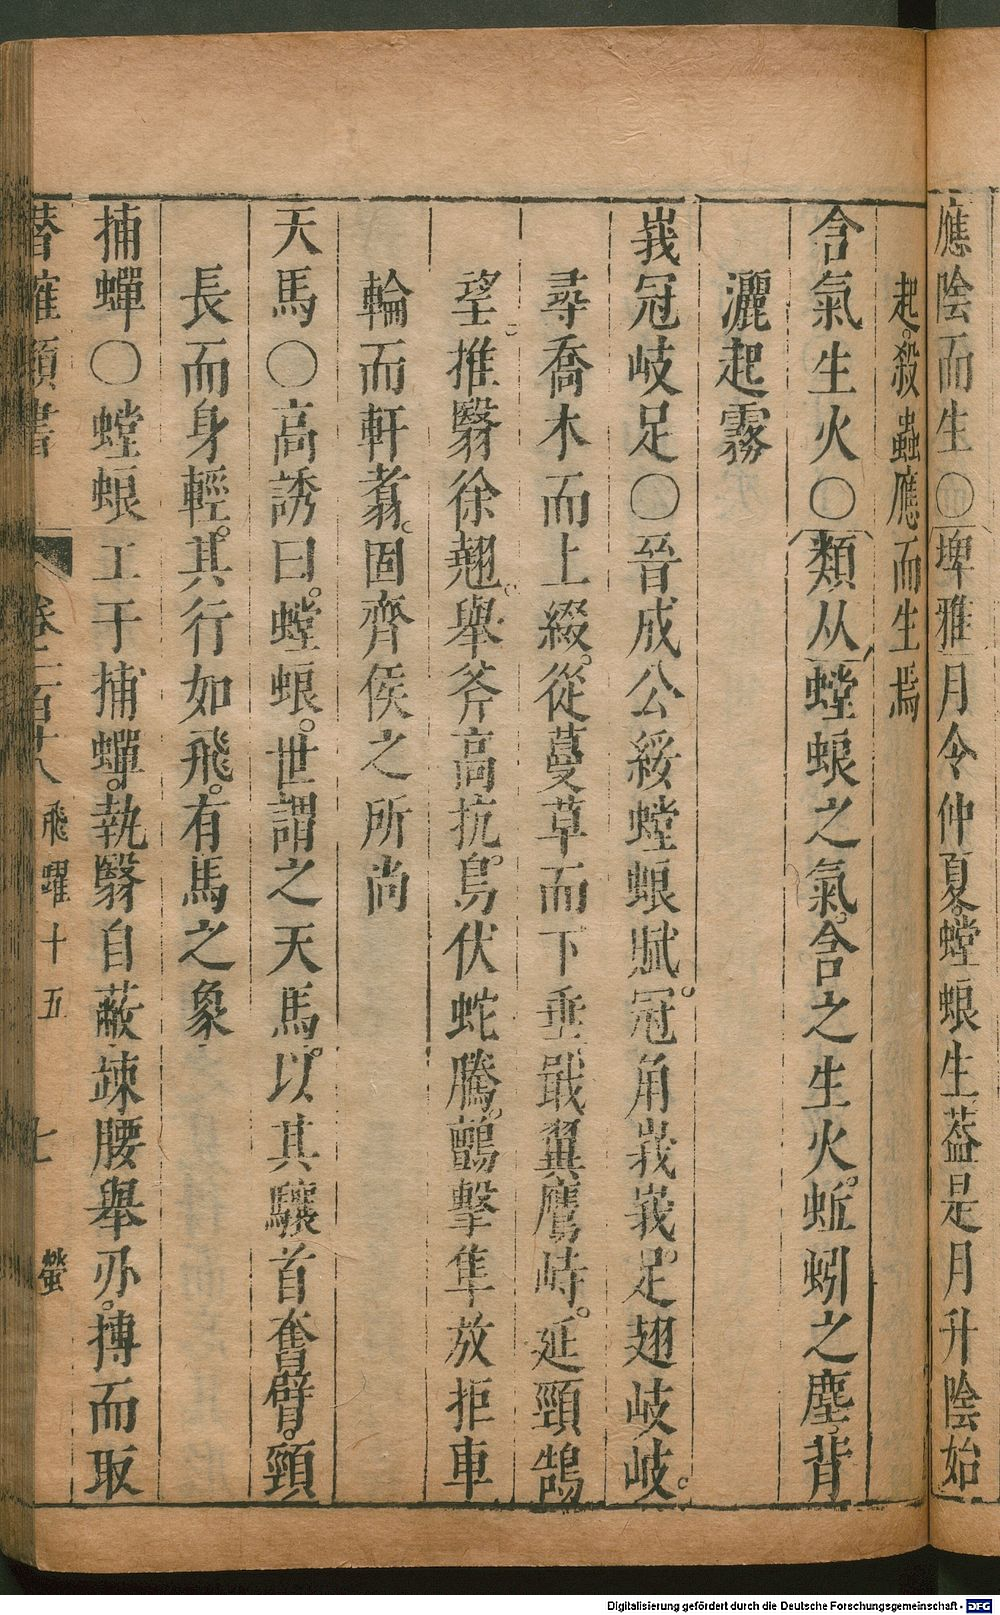 應陰而生○埤雅月令仲夏螳蜋生葢是月升陰始
起殺蟲應而生焉
含氣生火○類从螳蜋之氣含之生火蚯蚓之塵背
灑起霧
峩冠岐足○晉成公綏螳蜋賦冠角峩峩足翅岐岐
尋喬木而上綴從蔓草而下垂戢翼鷹峙延頸鵠
望推翳徐翹舉斧高抗鳥伏蛇騰鷂擊隼放拒車
輪而軒翥固齊侯之所尚
天馬○高誘曰螳蜋世謂之天馬以其驤首奮臂頸
長而身輕其行如飛有馬之象
捕蟬○螳蜋工于捕蟬執翳自蔽竦腰舉刅搏而取
潛確類書 卷二百十八 飛躍十五 七 螢
Digitalisierung gefördert durch die Deutsche Forschungsgemeinschaft - DFG